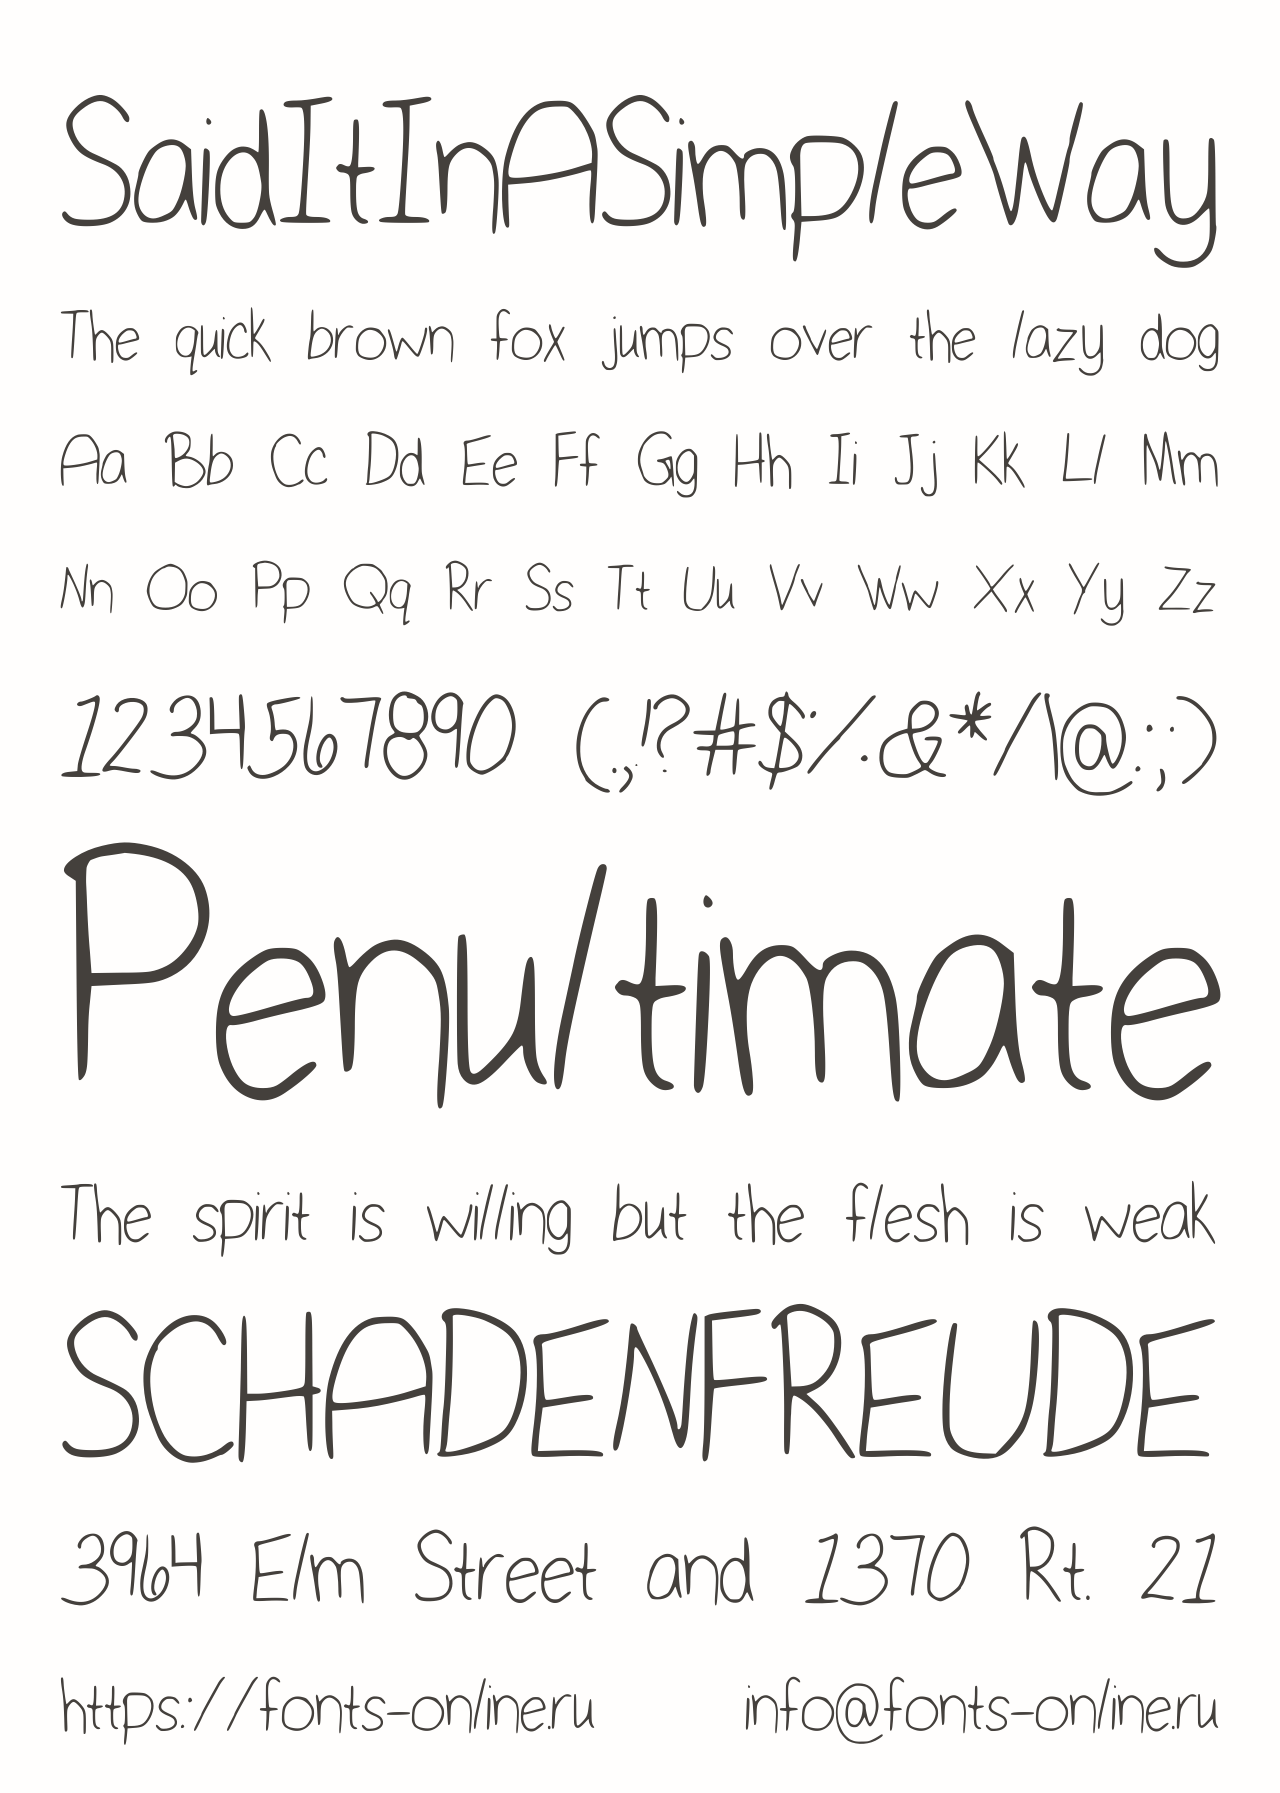 SaidItInASimpleWay
The quick brown fox jumps over the lazy dog
Aa Bb Cc Dd Ee Ff Gg Hh Ii Jj Kk Ll Mm
Nn Oo Pp Qq Rr Ss Tt Uu Vv Ww Xx Yy Zz
1234567890 (.,!?#$%&*/\@:;)
Penultimate
The spirit is willing but the flesh is weak
SCHADENFREUDE
3964 Elm Street and 1370 Rt. 21
https://fonts-online.ru info@fonts-online.ru